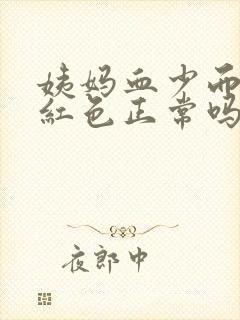 姨妈血少而
红色正常吗
夜郎中